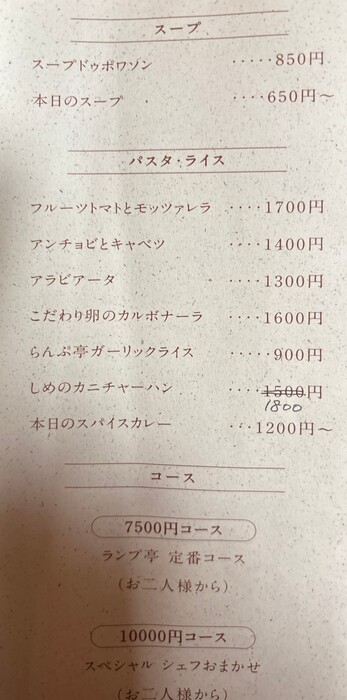 スープ
スープドゥポワソン ・・・・・850円
本日のスープ ・・・・650円〜
パスタ・ライス
フルーツトマトとモッツァレラ ・・・・1700円
アンチョビとキャベツ ・・・・1400円
アラビアータ ・・・・1300円
こだわり卵のカルボナーラ ・・・・1600円
らんぷ亭ガーリックライス ・・・・・900円
しめのカニチャーハン ・・・・1500円
1800
本日のスパイスカレー ・・・1200円〜
コース
7500円コース
ランプ亭 定番コース
(お二人様から)
10000円コース
スペシャル シェフおまかせ
(お二人様から)